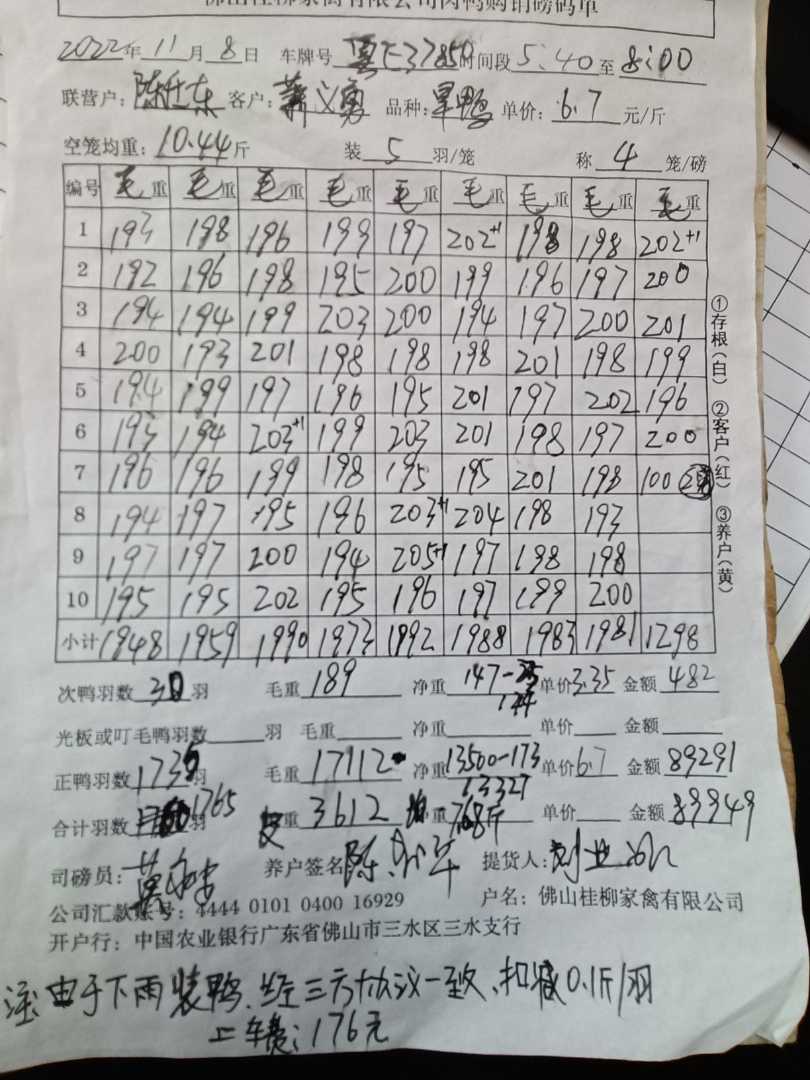 佛山桂柳家禽有限公司肉鸭购销磅码单
2022年 11月 8日 车牌号 37850 时间段 5:40 至 8:00
联营户: 陈仕东 客户: 萧义勇 品种: 旱鸭 单价: 6.7 元/斤
空笼均重: 10.44斤 装 5 羽/笼 称 4 笼/磅
编号 毛重 毛重 毛重 毛重 毛重 毛重 毛重 毛重 毛重
1 193 198 196 199 197 202+1 198 198 202+1
2 192 196 198 195 200 199 196 197 200
3 194 194 199 203 200 194 197 200 201
4 200 193 201 198 198 198 201 198 199
5 194 199 197 196 195 201 197 202 196
6 193 194 203+1 199 203 201 198 197 200
7 196 196 199 198 195 195 201 198 100
8 194 197 195 196 203+1 204 198 193
9 197 197 200 194 205+1 197 198 198
10 195 195 202 195 196 197 199 200
小计 1948 1959 1990 1973 1992 1988 1983 1981 1298
①存根(白) ②客户(红) ③养户(黄)
次鸭羽数 30 羽 毛重 189 净重 147- 单价 3.35 金额 482
光板或叮毛鸭羽数 羽 毛重 净重 单价 金额
正鸭羽数 1735 羽 毛重 17112 净重 13500-173 单价 6.7 金额 89291
13327
合计羽数 1765 羽 皮重 3612 重 7.68斤 单价 金额 89949
司磅员: 养户签名 陈 提货人:
公司汇款账号: 4444 0101 0400 16929 户名: 佛山桂柳家禽有限公司
开户行: 中国农业银行广东省佛山市三水区三水支行
注: 由于下雨装鸭、经三方协议一致、扣减0.1斤/羽
上车费: 176元